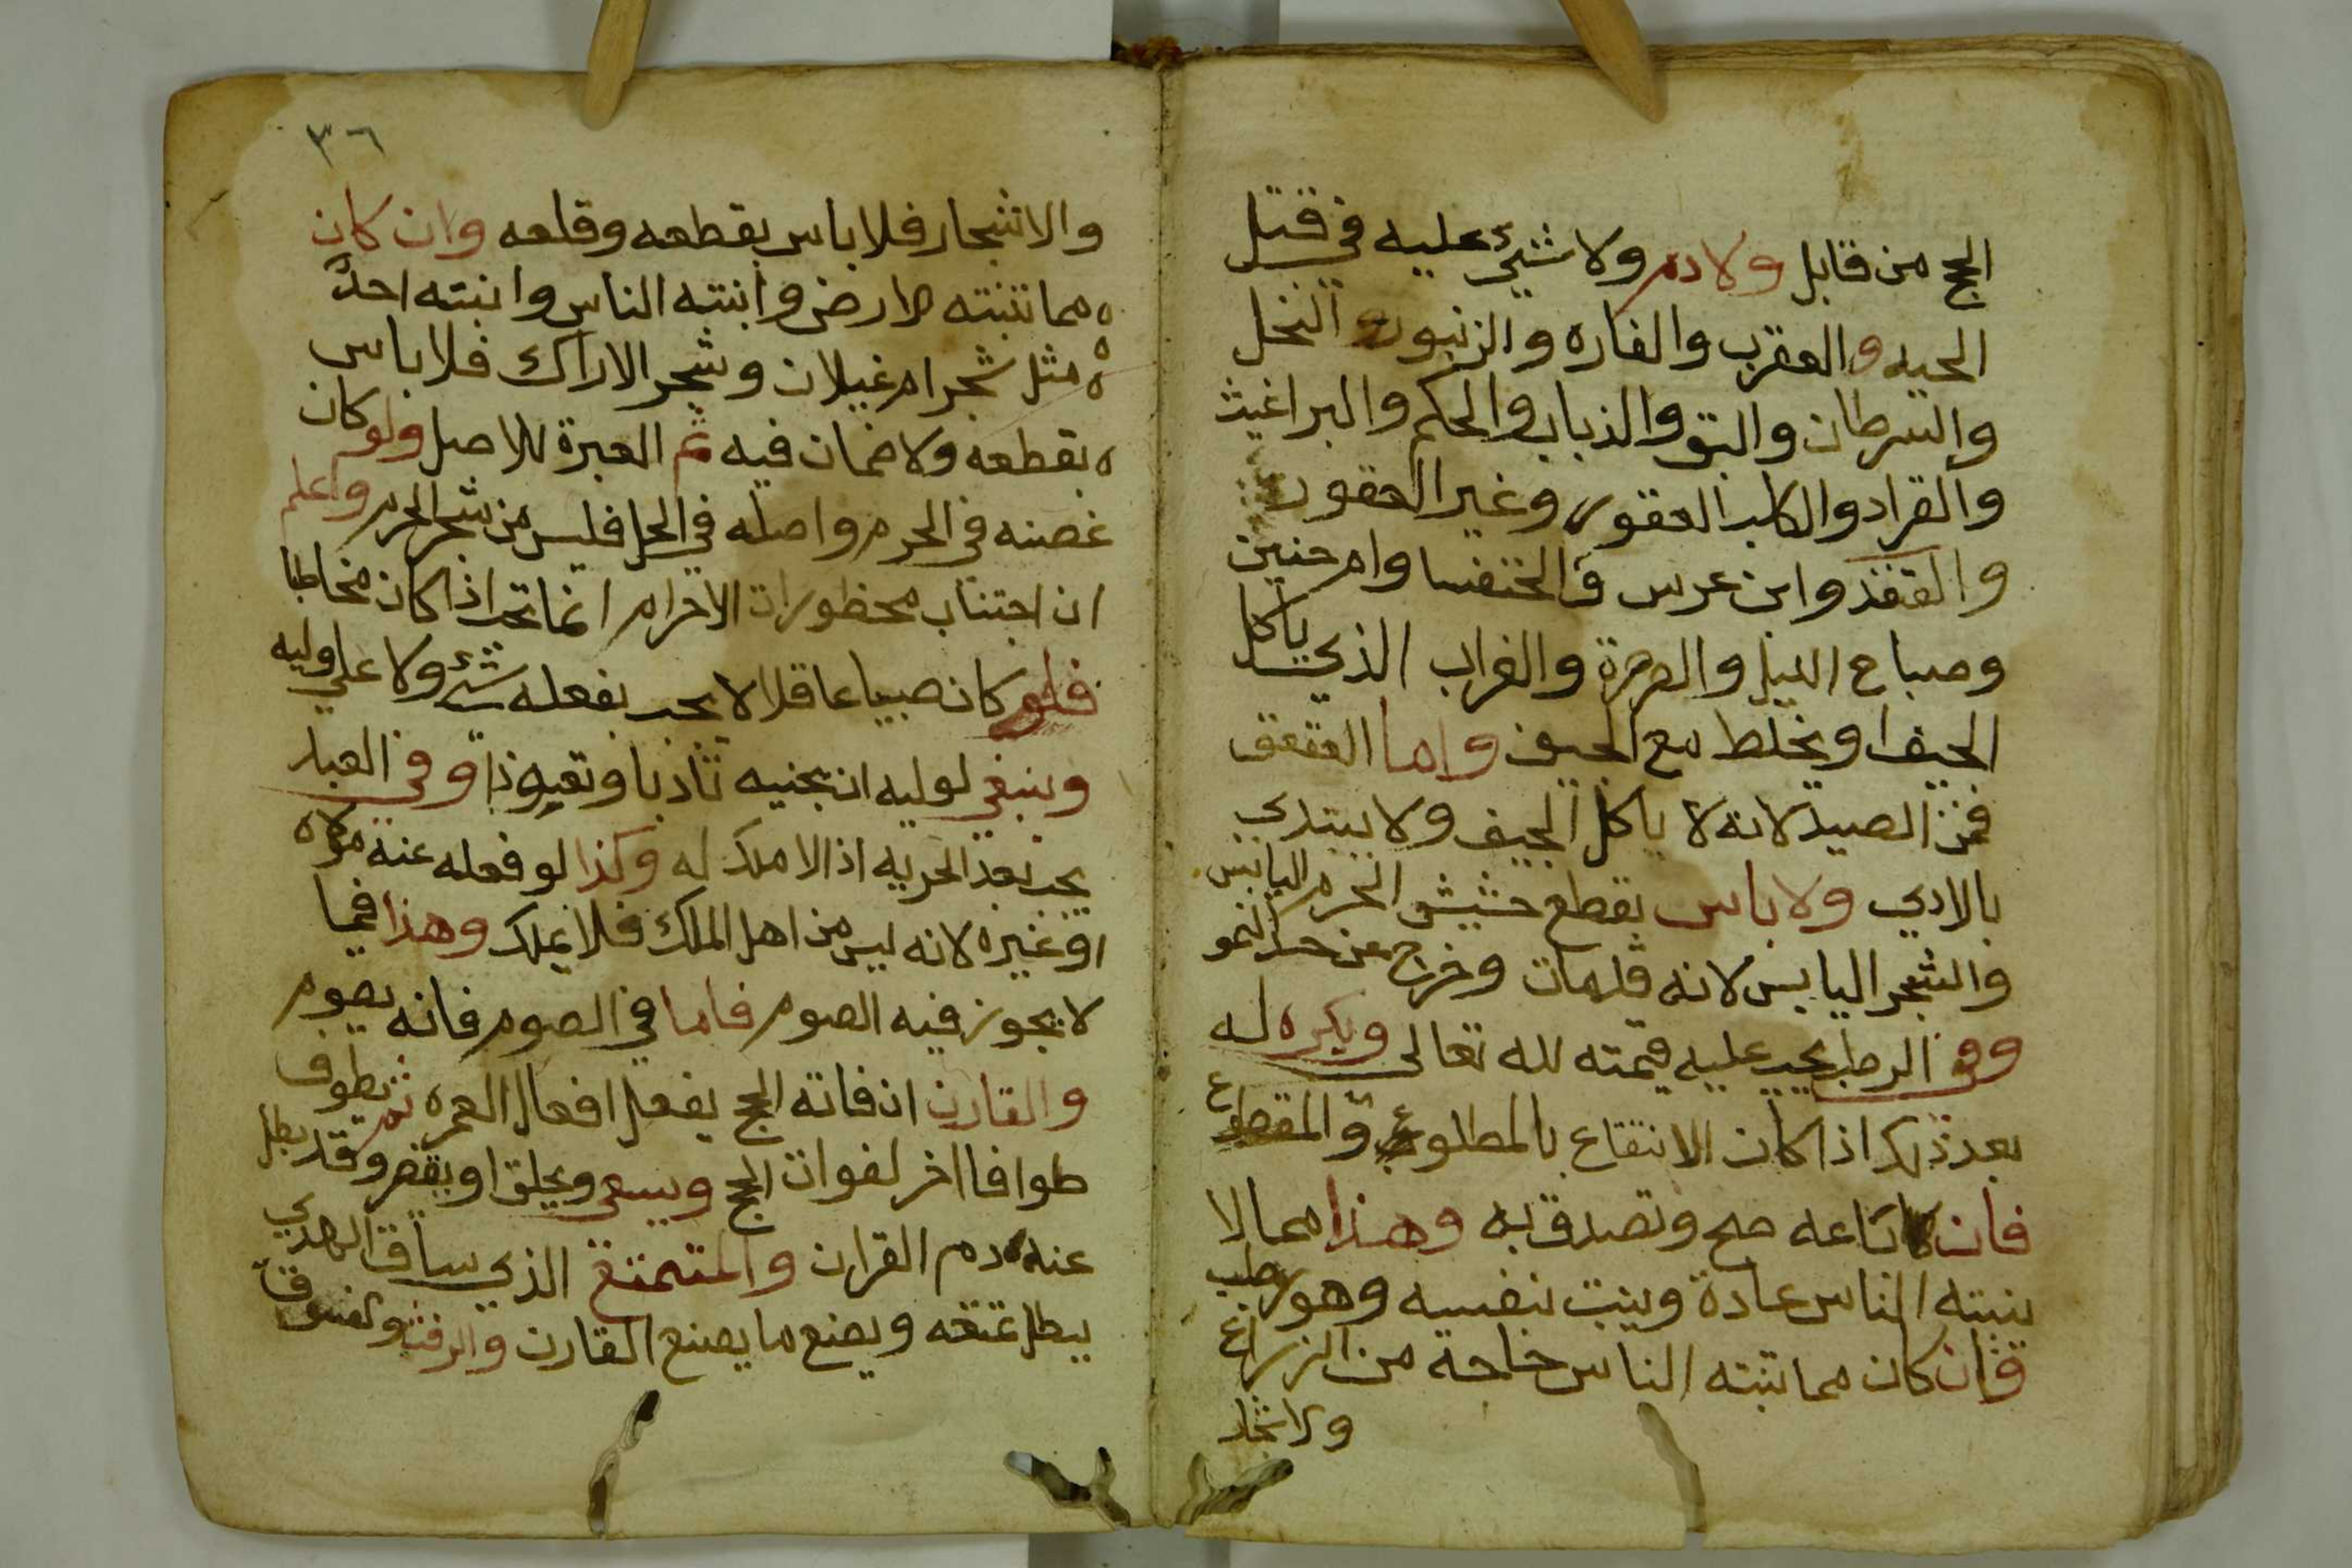 الحج من قابل ولا دم ولا شيء عليه في قتل
الحيه والعقرب والفاره والزنبور النحل
والسرطان والبق والذباب والحكم والبراغيث
والقراد والكلب العقور وغير العقور
والقنفذ وابن عرس والخنفسا وام حنين
وصباع الليل والصرصرة والغراب الذي ياكل
الجيف او يخلط مع الجيف واما العقعق
فمن الصيد لانه لا ياكل الجيف ولا يبتدي
بالادي ولا باس بقطع حشيش الحرم اليابس
والشجر اليابس لانه قد مات وخرج من حد النمو
وفي الرطب يجب عليه قيمته لله تعالى ويكره له
بعد ذلك اذا كان الانتفاع بالمطلوع والمقطوع
فان باعه صح وتصدق به وهذا مما لا
ينبته الناس عادة وينبت بنفسه وهو رطب
وان كان مما تنبته الناس خاحه من الزراع
والاشجار
٣٦
والاشجار فلا باس بقطعه وقلعه وان كان
مما تنبته الارض وانبته الناس وانبته احد
مثل شجر ام غيلان وشجر الاراك فلا باس
بقطعه ولا ضمان فيه ثم العبرة للاصل ولو كان
غصنه في الحرم واصله في الحل فليس من شجر الحرم واعلم
ان اجتناب محظورات الاحرام انما تجب اذا كان مخاطبا
فلو كان صبيا عاقلا لا يجب بفعله شيء ولا على وليه
وينبغي لوليه ان يجنبه تاديبا وتعويذا وفي العبد
يجب بعد الحريه اذ الا ملك له وكذا لو فعله عنه مولاه
او غيره لانه ليس من اهل الملك فلا يملك وهذا فيما
لا يجوز فيه الصوم فاما في الصوم فانه يصوم
والقارن ان فاته الحج يفعل افعال العمره ثم يطوف
طوافا اخر لفوات الحج ويسعى ويحلق او يقصر وقد بطل
عنه دم القران والمتمتع الذي ساق الهدي
يبطل تمتعه ويصنع ما يصنع القارن والرفث والفسوق